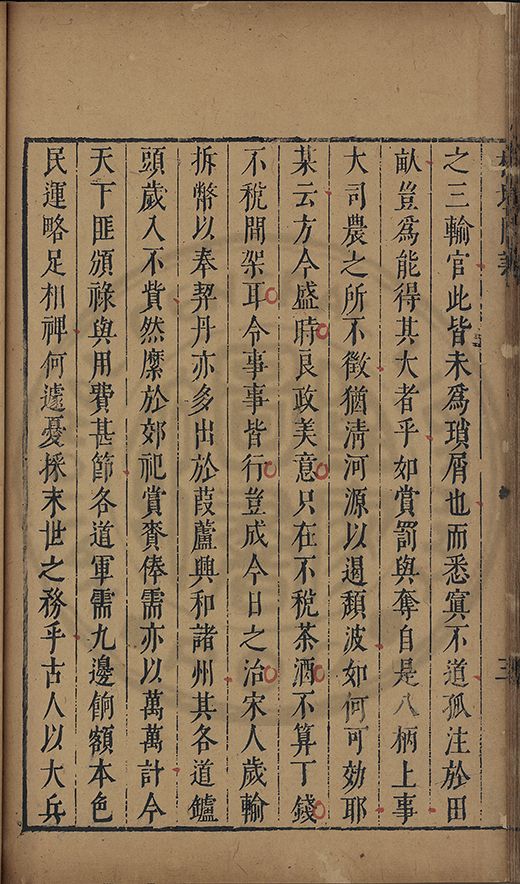 之三輸官此皆未爲瑣屑也而悉寘不道孤注於田
畝豈爲能得其大者乎如賞罰與奪自是八柄上事
大司農之所不徵猶清河源以遏頽波如何可効耶
某云方今盛時良政美意只在不稅茶酒不算丁錢
不稅間架耳今事事皆行豈成今日之治宋人歲輸
拆幣以奉契丹亦多出於葭蘆興和諸州其各道鑪
頭歲入不貲然縻於郊祀賞賚俸需亦以萬萬計今
天下匪頒祿與用費甚節各道軍需九邊餉額本色
民運略足相禆何遽憂採末世之務乎古人以大兵